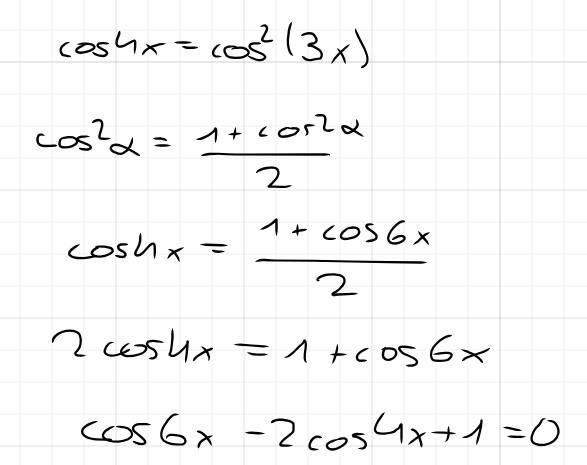 cos4x = cos²(3x)
cos²α = (1 + cos2α)/2
cos4x = (1 + cos6x)/2
2cos4x = 1 + cos6x
cos6x - 2cos4x + 1 = 0